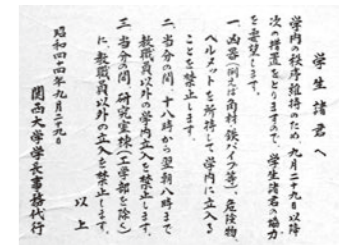 学生諸君へ
学内の秩序維持のため、九月二十九日以降
次の措置をとりますので、学生諸君の協力
を要望します。
一、凶器（例えば角材、鉄パイプ等）、危険物、
ヘルメットを所持して、学内に立入る
ことを禁止します。
二、当分の間、十八時から翌朝八時まで
教職員以外の学内立入を禁止します。
三、当分の間、研究室棟（工学部を除く）
に、教職員以外の立入を禁止します。
以上
昭和四十四年九月二十九日
関西大学学長事務代行